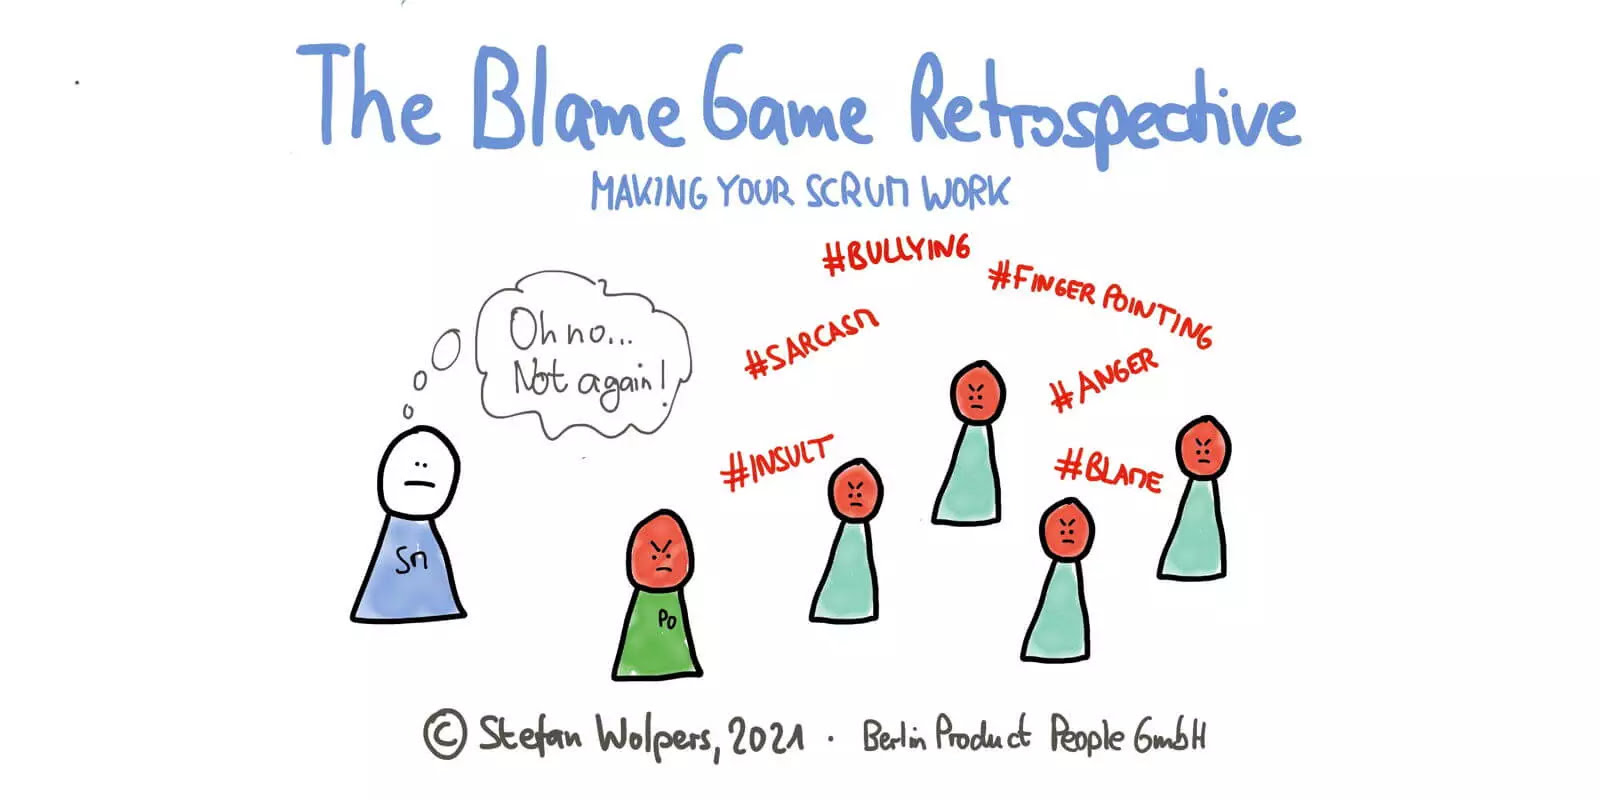 The Blame Game Retrospective
MAKING YOUR SCRUM WORK
#BULLYING
#FINGER POINTING
#SARCASM
#ANGER
#INSULT
#BLAME
Oh no...
Not again!
SM
PO
© Stefan Wolpers, 2021 · Berlin Product People GmbH